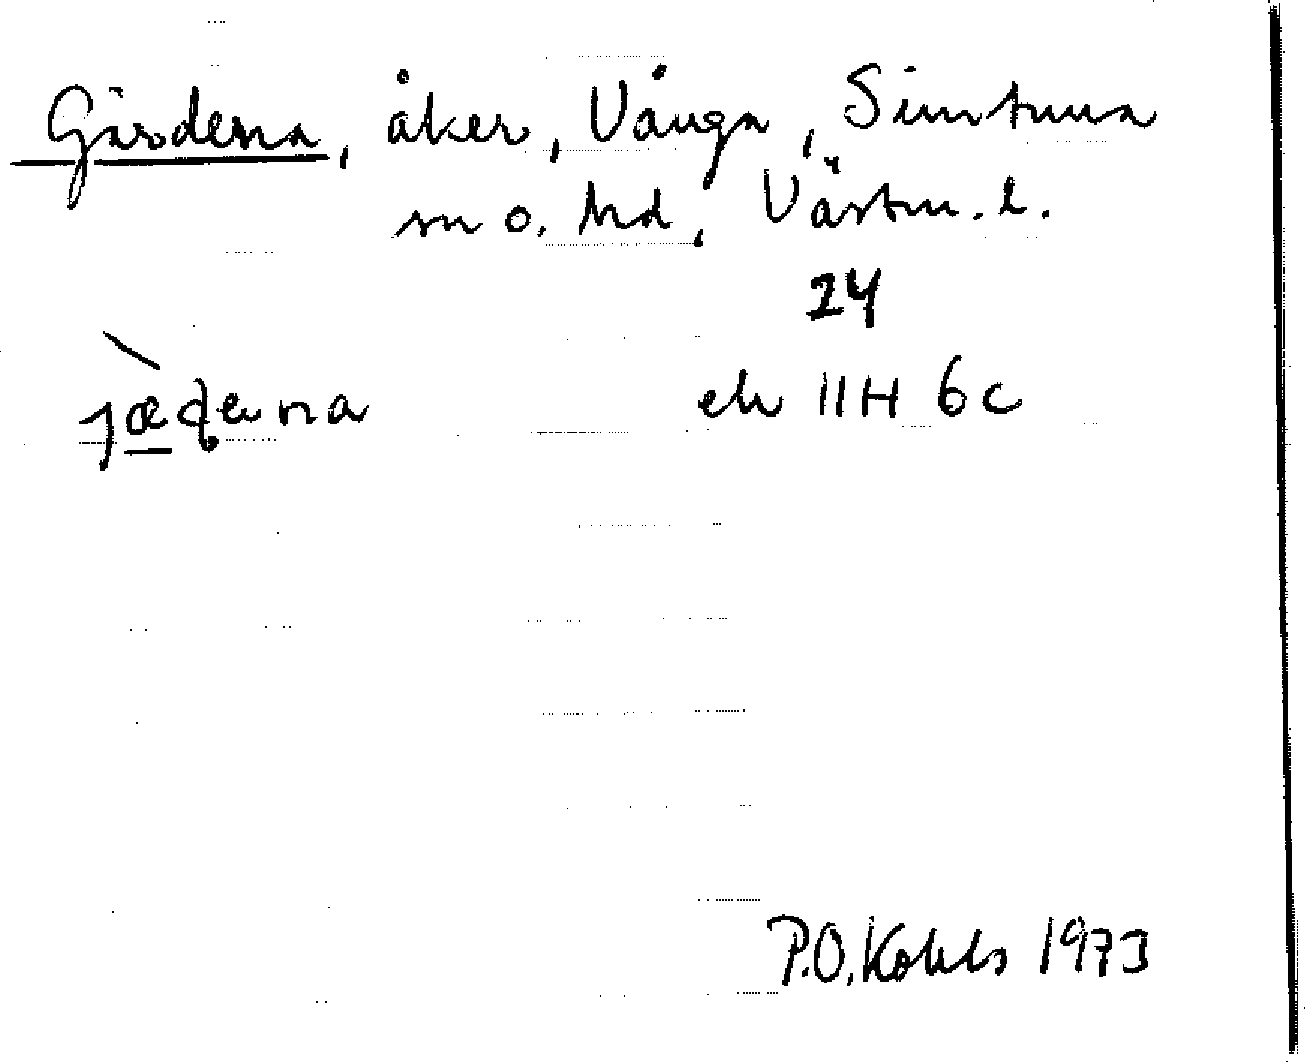 Gärdena, åker, Vånga, Simtuna
sn o. hd, Västm. l.
24
jæ̱ḍena
ek 11H 6c
P.O. Kohls 1973